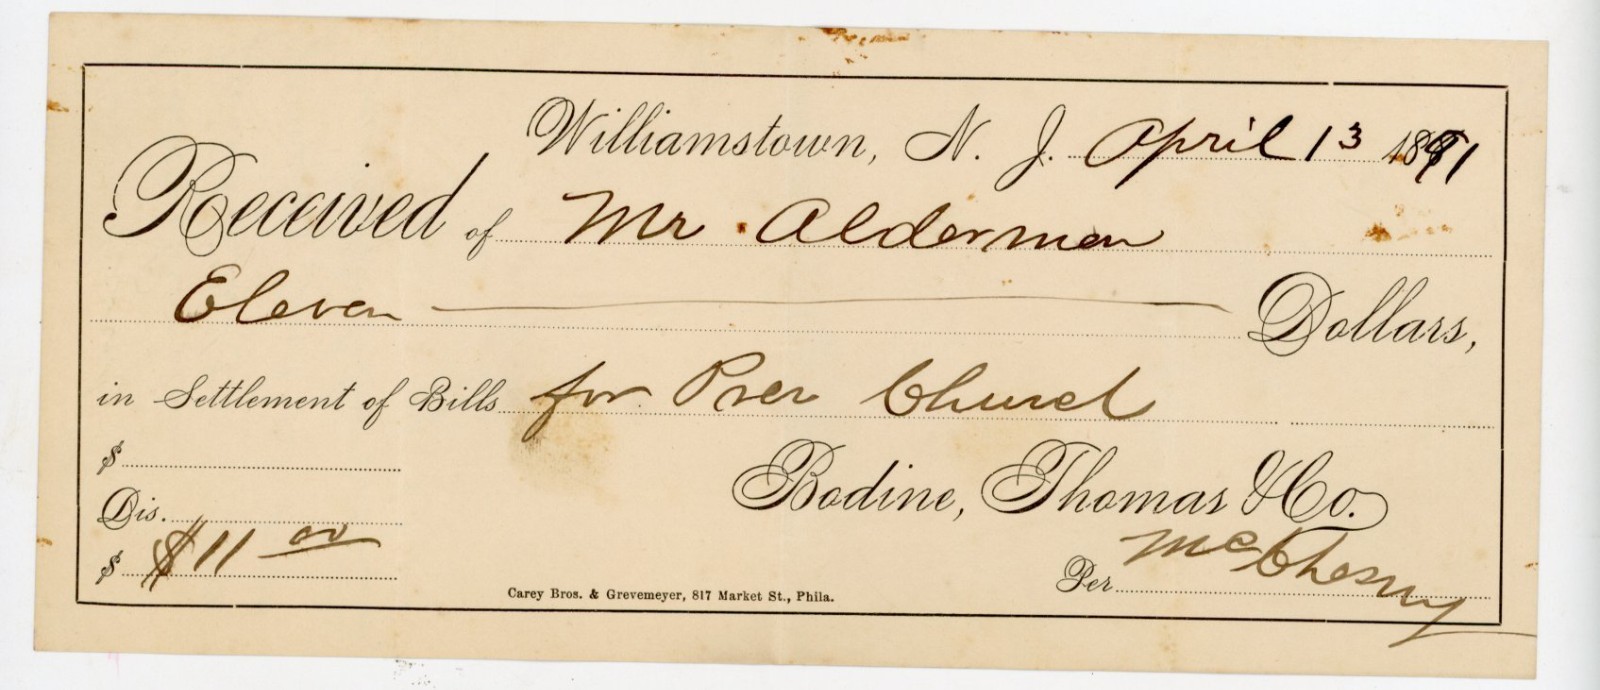 Williamstown, N. J. April 13 1891
Received of Mr. Alderman
Eleven Dollars,
in Settlement of Bills for Pres Church
$
Dis.
$ $11 00
Bodine, Thomas & Co.
Per McChesny
Carey Bros. & Grevemeyer, 817 Market St., Phila.